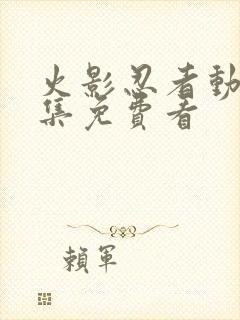 火影忍者動
集免費看
賴軍